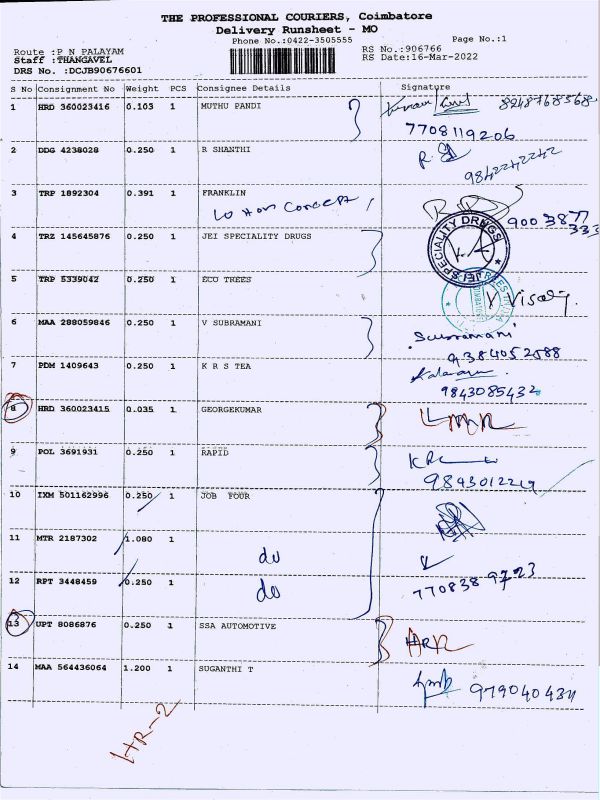 THE PROFESSIONAL COURIERS, Coimbatore
Delivery Runsheet - MO
Phone No.:0422-3505555 Page No.:1
Route :P N PALAYAM RS No.:906766
Staff :THANGAVEL RS Date:16-Mar-2022
DRS No. :DCJB90676601
S No Consignment No Weight PCS Consignee Details Signature
1 HRD 360023416 0.103 1 MUTHU PANDI
7708119206
2 DDG 4238028 0.250 1 R SHANTHI
9842242242
3 TRP 1892304 0.391 1 FRANKLIN
900 3877 333
4 TRZ 145645876 0.250 1 JEI SPECIALITY DRUGS
JEI SPECIALITY DRUGS
5 TRP 5339042 0.250 1 ECO TREES
6 MAA 288059846 0.250 1 V SUBRAMANI
9384052588
7 PDM 1409643 0.250 1 K R S TEA
9843085432
8 HRD 360023415 0.035 1 GEORGEKUMAR
9 POL 3691931 0.250 1 RAPID
9843012219
10 IXM 501162996 0.250 1 JOB FOUR
11 MTR 2187302 1.080 1
do
12 RPT 3448459 0.250 1 do
770838 9723
13 UPT 8086876 0.250 1 SSA AUTOMOTIVE
14 MAA 564436064 1.200 1 SUGANTHI T
HR-2